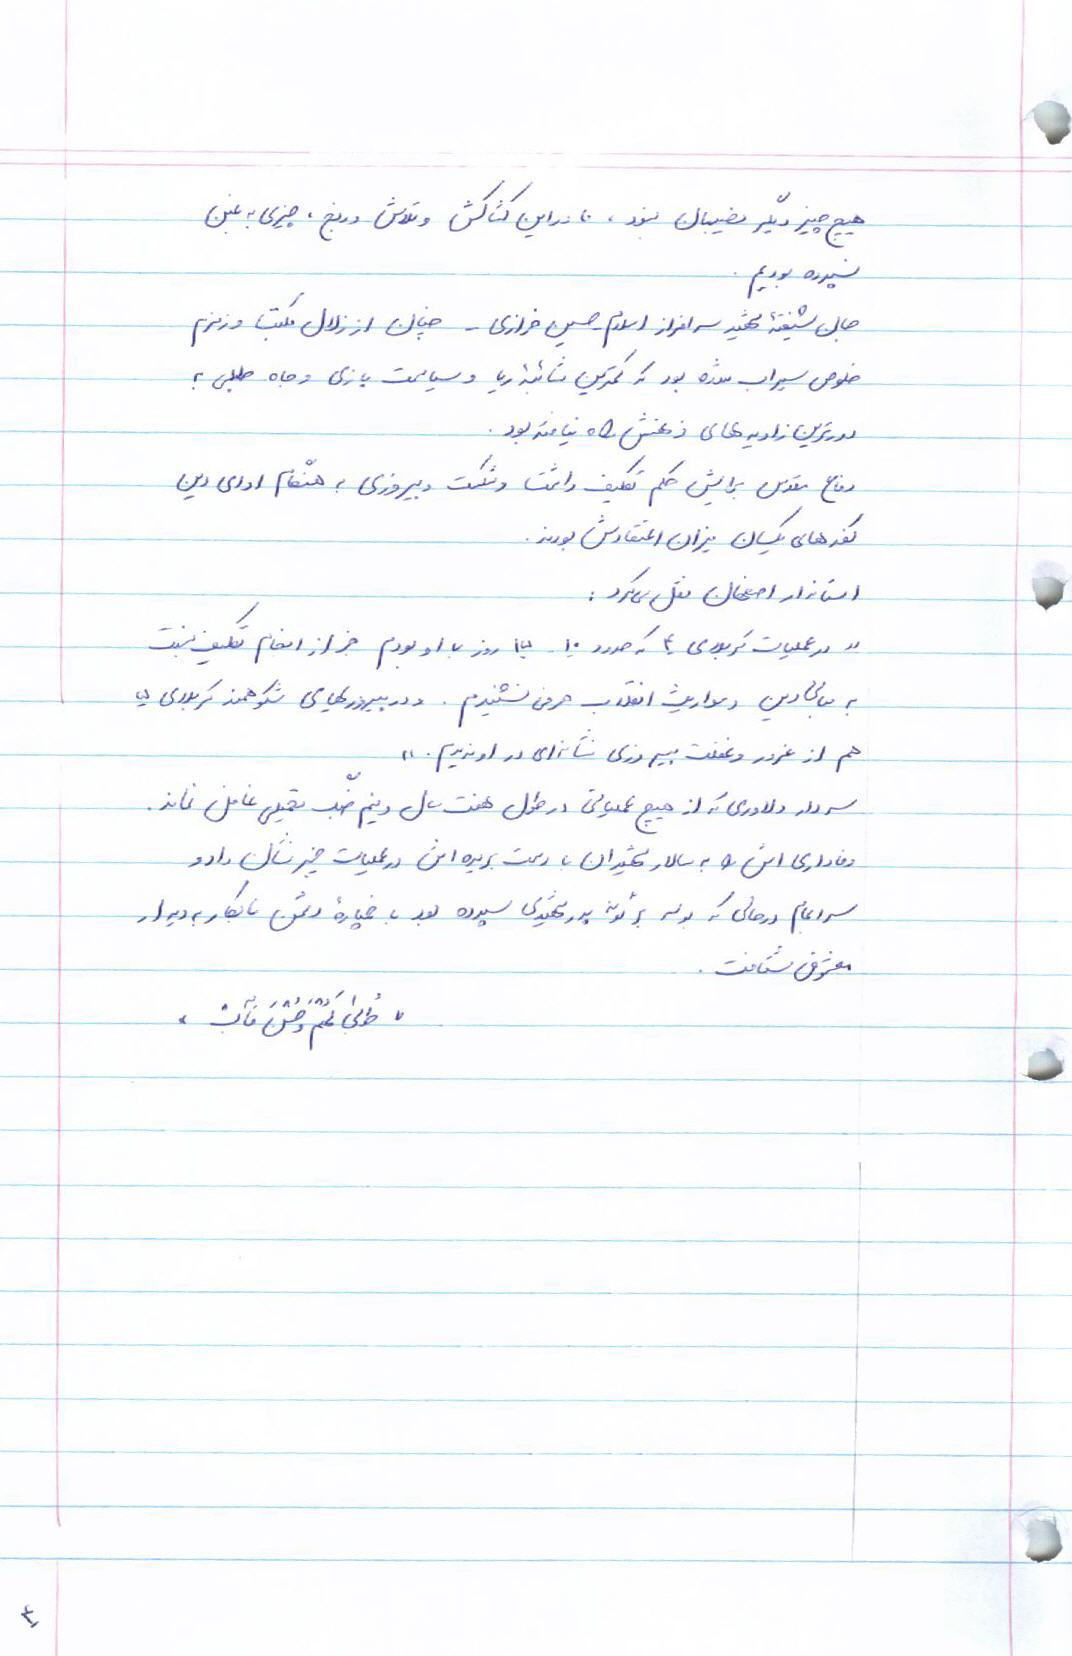 هیچ چیز دیگر نصیبمان نبود، ما در این کشاکش و تلاش و رنج، چیزی به غبن
نسپرده بودیم.
جان شیفتهٔ شهید سرافراز اسلام_حسین خرازی_ چنان از زلال مکتب و زمزم
خلوص سیراب شده بود که کمترین شائبهٔ ریا و سیاست بازی و جاه طلبی به
دورترین زاویه‌های ذهنش راه نیافته بود.
دفاع مقدس برایش حکم تکلیف داشت و شکست و پیروزی به هنگام ادای دین
کفه‌های یکسان میزان اعتقادش بودند.
استاندار اصفهان نقل می‌کرد:
« در عملیات کربلای ۴ که حدود ۱۰ - ۱۵ روز با او بودم جز از انجام تکلیف نسبت
به مبانی دین و مواریث انقلاب حرفی نشنیدم. و در پیروزیهای شکوهمند کربلای ۵
هم از غرور و غفلت پیروزی نشانه‌ای در او ندیدم. »
سردار دلاوری که از هیچ عملیاتی در طول هفت سال و نیم جنگ تحمیلی غافل نماند.
وفاداری اش را به سالار شهیدان با دست بریده اش در عملیات خیبر نشان داد و
سرانجام در حالی که بوسه بر گونه پدر شهیدی سپرده بود با خمپارهٔ دشمن نابکار به دیدار
معشوق شتافت.
« طُوبیٰ لَهُمْ وَ حُسْنُ مَآب »
۴